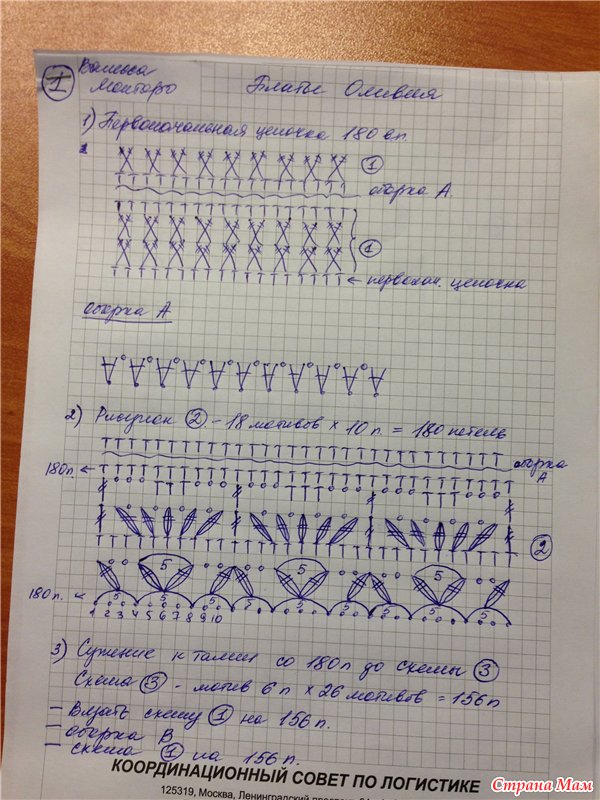 1
Ванесса
Монторо
Платье Оливия
1) Первоначальная цепочка 180 вп.
1
оборка А.
1
← первонач. цепочка
оборка А
2) Рисунок 2 – 18 мотивов × 10 п. = 180 петель
оборка А
180п. ←
2
5 5 5
180п. ←
5 5 5 5 5 5 5 5
1 2 3 4 5 6 7 8 9 10
3) Сужение к талии со 180п до схемы 3
Схема 3 – мотив 6 п × 26 мотивов = 156п
– Вязать схему 1 на 156 п.
– оборка В
– схема 1 на 156 п.
КООРДИНАЦИОННЫЙ СОВЕТ ПО ЛОГИСТИКЕ
125319, Москва, Ленинградский
Страна Мам